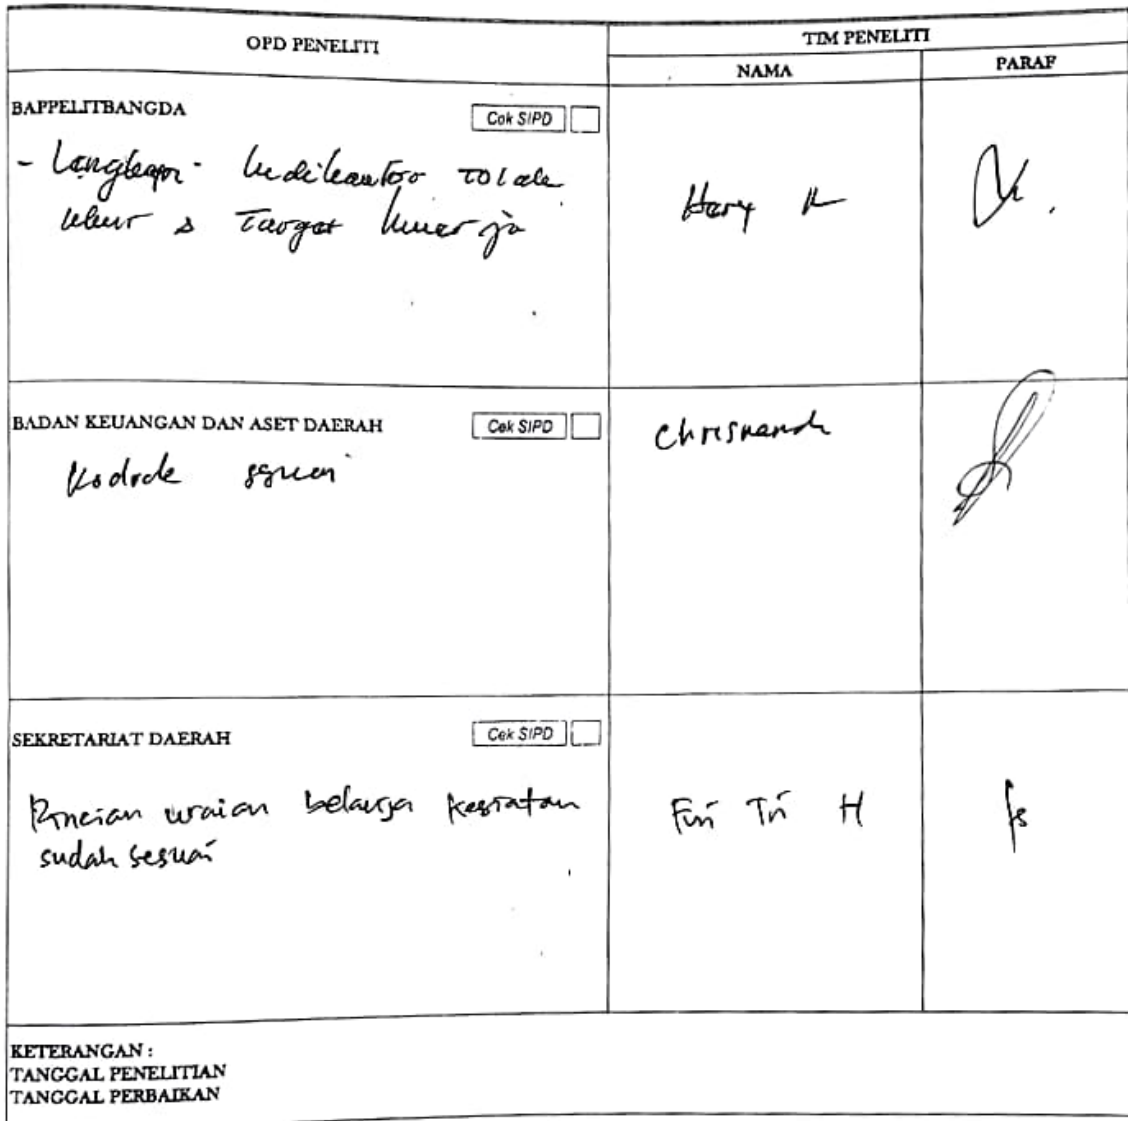 OPD PENELITI
TIM PENELITI
NAMA
PARAF
BAPPELITBANGDA
Cek SIPD
- Lengkapi Indikator Tolak
Ukur & Target Kinerja
Hery K
BADAN KEUANGAN DAN ASET DAERAH
Cek SIPD
Kodrek sesuai
Chrisnanda
SEKRETARIAT DAERAH
Cek SIPD
Rincian uraian belanja kegiatan
sudah sesuai
Tri H
KETERANGAN :
TANGGAL PENELITIAN
TANGGAL PERBAIKAN